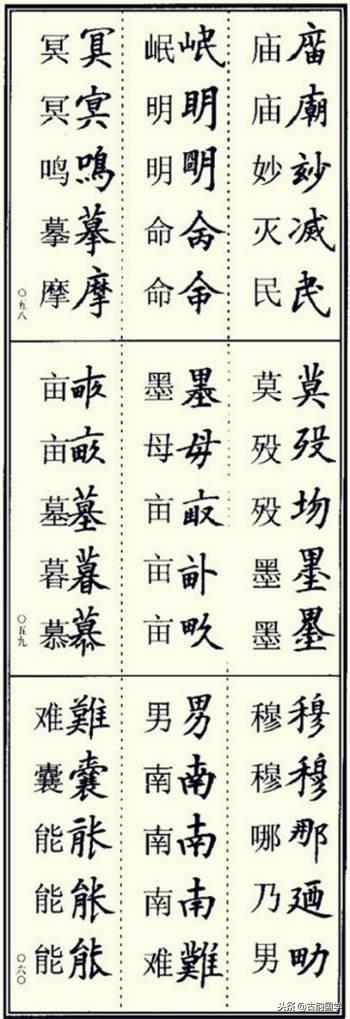 庿廟玅滅民
庙庙妙灭民
岷明明命命
岷明明命命
冥冥鳴摹摩
冥冥鸣摹摩
〇五八
莫歿圽墨墨
莫殁殁墨墨
墨母畂
墨母亩亩亩
墓暮慕
亩亩墓暮慕
〇五九
穆穆那廼
穆穆哪乃男
男南南南難
男南南南难
難囊能能能
难囊能能能
〇六〇
头条@古韵国学